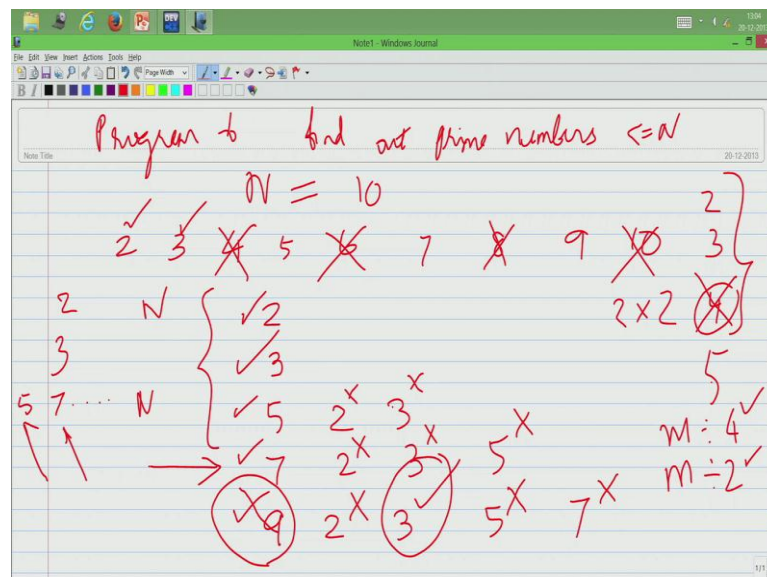 13:04
20-12-201
Note1 - Windows Journal
File Edit View Insert Actions Tools Help
Page Width
B I
Program to find out prime numbers <=N
Note Title
20-12-2013
N = 10
2 3 4 5 6 7 8 9 10
2
3
2 N
2
2 x 2 4
3
3
5
5 7 .... N
5 2 x 3 x
m ÷ 4
7 2 x 3 x 5 x
m ÷ 2
9 2 x 3 5 x 7 x
1/1